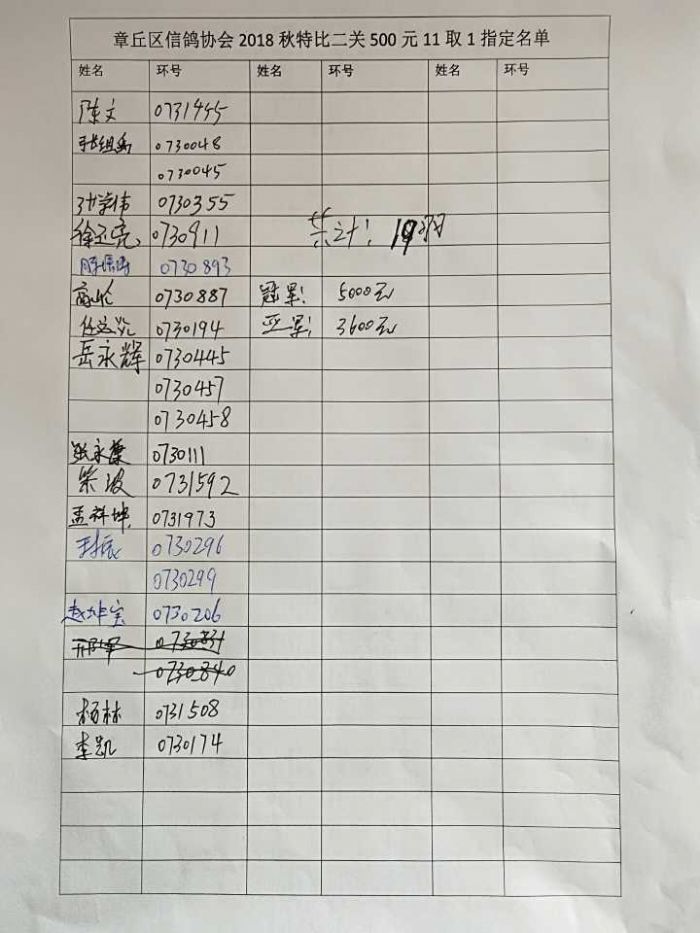 章丘区信鸽协会 2018 秋特比二关 500 元 11 取 1 指定名单
姓名 环号 姓名 环号 姓名 环号
陈文 0731455
0730048
0730045
张学伟 0730355
0730911 共计：19羽
0730893
0730887 冠军：5000元
0730194 亚军：3600元
岳永辉 0730445
0730457
0730458
张永 0730111
柴波 0731592
孟祥坤 0731973
0730296
0730299
赵坤宝 0730206
0730831
0730840
杨林 0731508
李凯 0730174